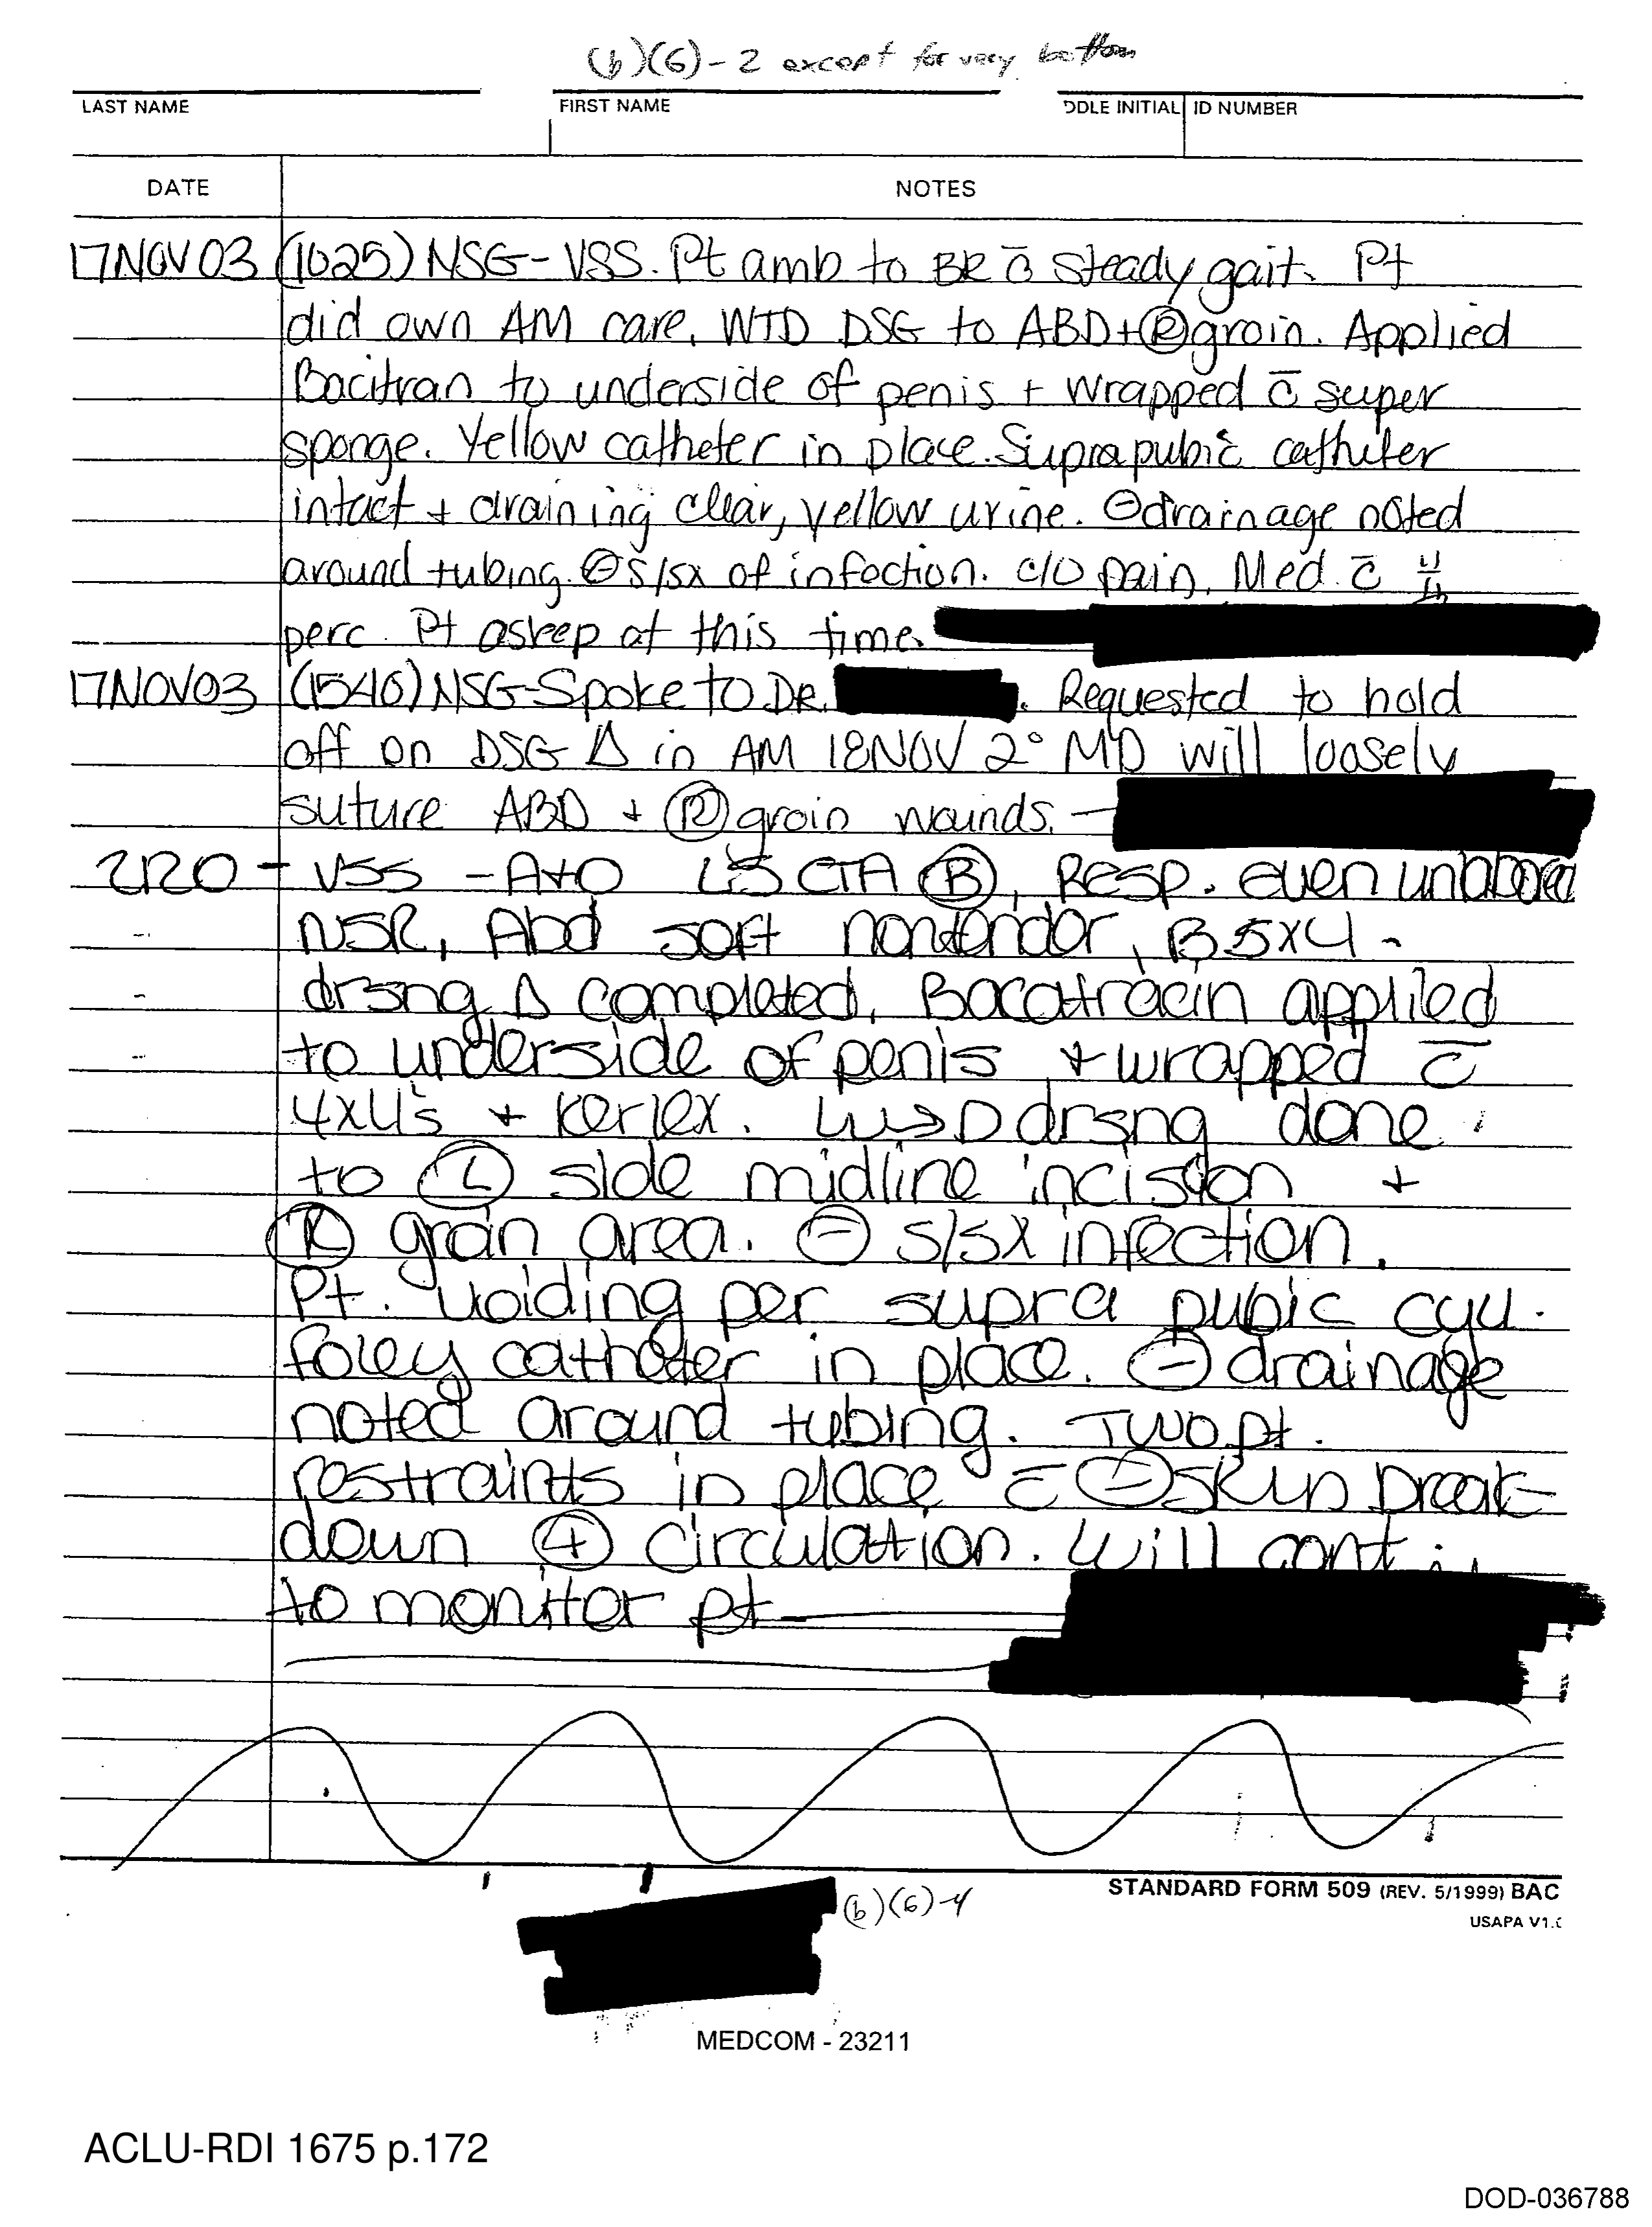 (b)(6)-2 except for very bottom
LAST NAME FIRST NAME DDLE INITIAL ID NUMBER
DATE NOTES
17NOV03 (1025) NSG- VSS. Pt amb to BR c̄ steady gait. Pt
did own AM care. WTD DSG to ABD+Ⓡgroin. Applied
Bacitran to underside of penis + wrapped c̄ super
sponge. Yellow catheter in place. Suprapubic catheter
intact + draining clear, yellow urine. ⊖drainage noted
around tubing. ⊖s/sx of infection. c/o pain. Med. c̄ ii
perc. Pt asleep at this time.
17NOV03 (1546) NSG-Spoke to DR. . Requested to hold
off on DSG Δ in AM 18NOV 2° MD will loosely
suture ABD + Ⓡ groin wounds. -
2120 - VSS - A+O LS CTA Ⓑ, Resp. even unlabored
NSR, Abd soft nontender, BSX4 -
drsng Δ completed, Bacatracin applied
to underside of penis + wrapped c̄
4x4's + Kerlex. W→D drsng done
to Ⓛ side midline incision +
Ⓡ groin area. ⊖ s/sx infection.
Pt. voiding per supra pubic cyu.
foley catheter in place. ⊖ drainage
noted around tubing. Two pt.
restraints in place c̄ ⊖skin break-
down ⊕ circulation. Will cont
to monitor pt
STANDARD FORM 509 (REV. 5/1999) BAC
USAPA V1.0
(b)(6)-4
MEDCOM - 23211
ACLU-RDI 1675 p.172
DOD-036788